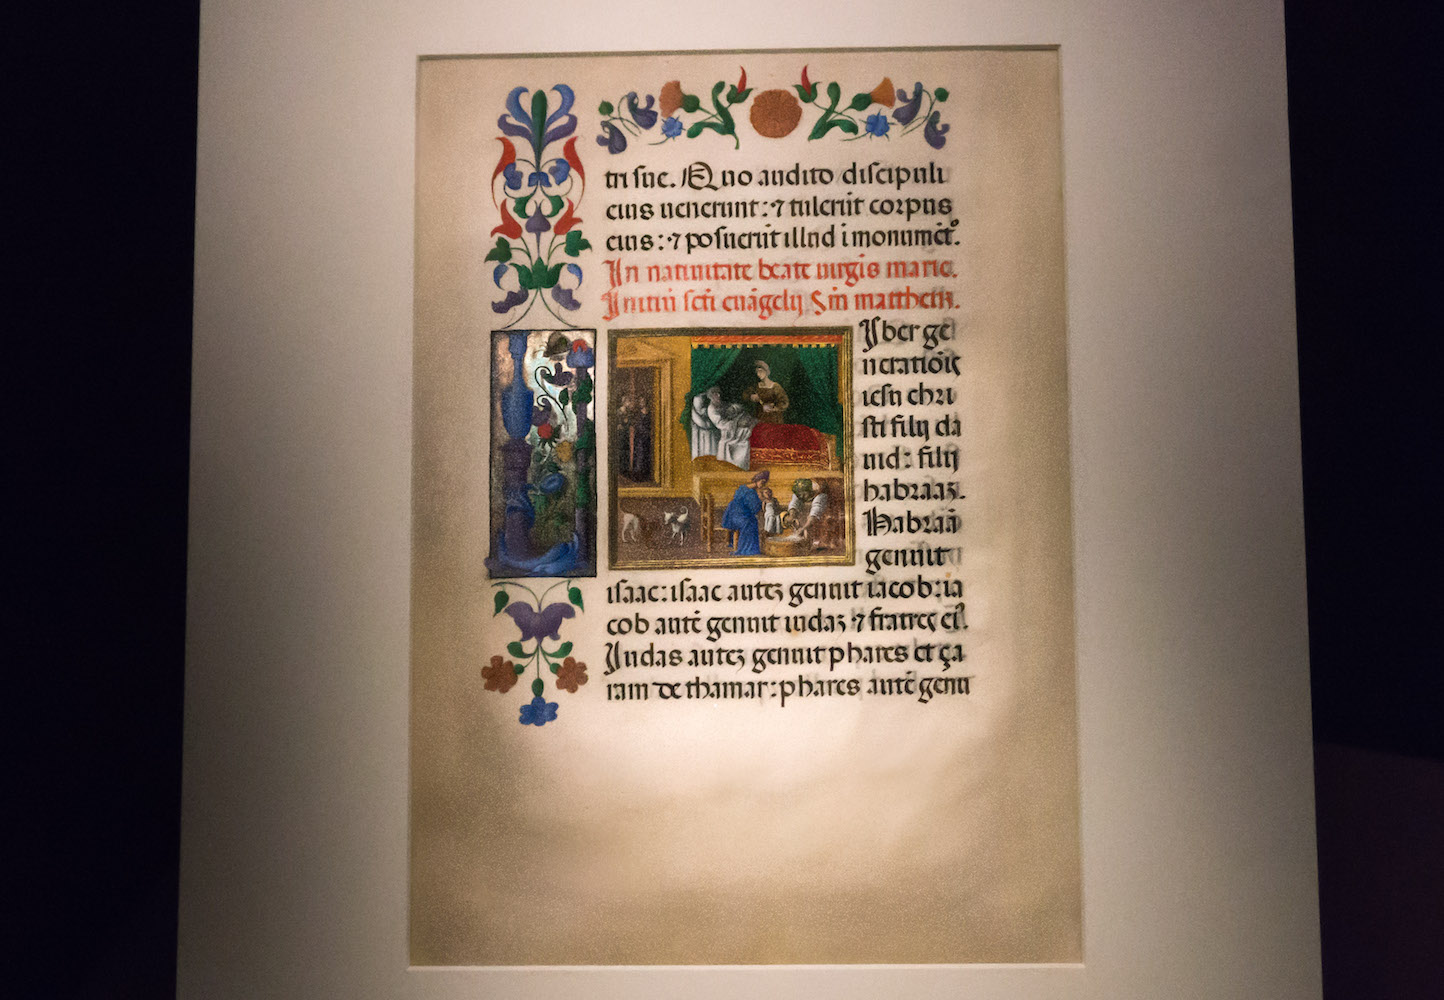 tri sue. Quo audito discipuli
eius uenerunt: ⁊ tulerūt corpus
eius: ⁊ posuerūt illud ī monumēt°.
In natiuitate beate uirgīs marie.
Initiū scī̄ euāgelij Sm̄ mattheū.
Iber ge
neratiōis
iesu chri
sti filij da
uid: filij
habraaꝫ.
Habraā
genuit
isaac: isaac auteꝫ genuit iacob: ia
cob autē genuit iudaꝫ ⁊ fratres ei⁹.
Iudas auteꝫ genuit phares et ça
ram de thamar: phares autē genu